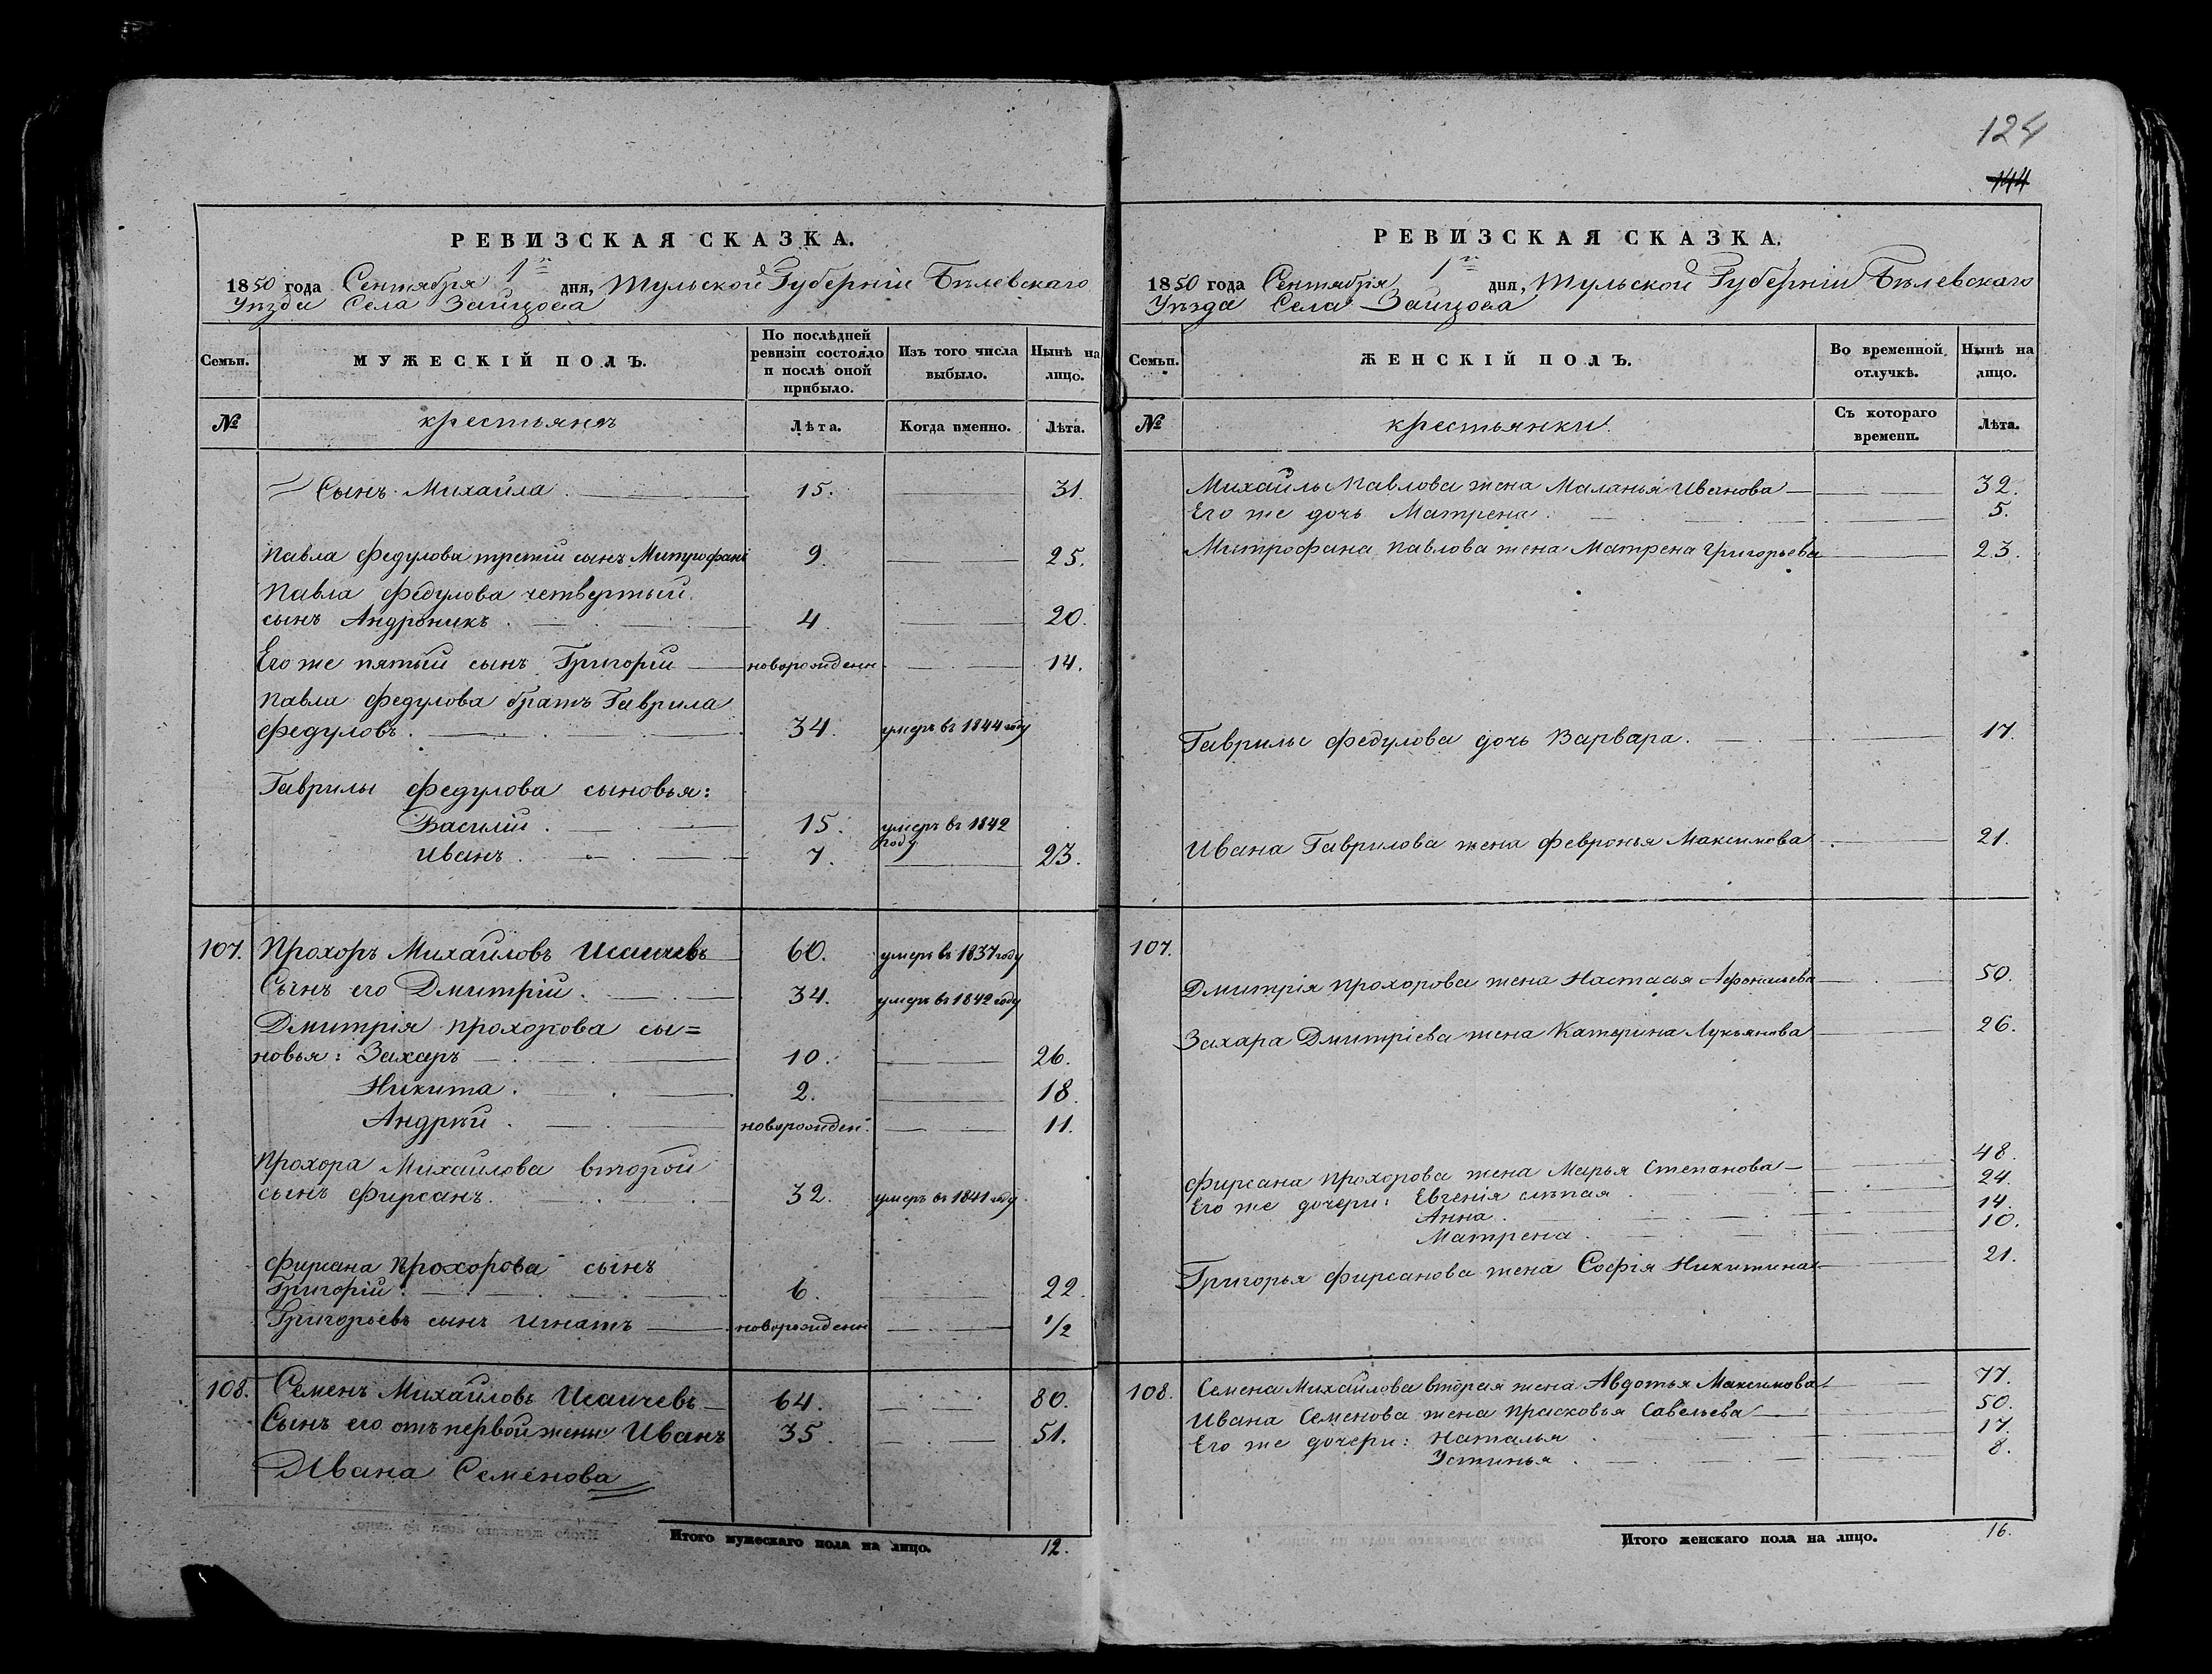 124
144
РЕВИЗСКАЯ СКАЗКА.
1850 года Сентября 1го дня, Тульской Губерніи Бѣлевскаго
Уѣзда Села Зайцова
Семьи.
МУЖЕСКІЙ ПОЛЪ.
По послѣдней ревизіи состояло и послѣ оной прибыло.
Изъ того числа выбыло.
Нынѣ на лицо.
№
крестьянъ
Лѣта.
Когда именно.
Лѣта.
Сынъ Михайла 15. 31.
Павла Федулова третій сынъ Митрофанъ 9. 25.
Павла Федулова четвертый
сынъ Андроникъ 4. 20.
Его же пятый сынъ Григорій новорожденн. 14.
Павла Федулова братъ Гаврила
Федуловъ. 34. умеръ въ 1844 году
Гаврилы Федулова сыновья:
Василій 15. умеръ въ 1842
году
Иванъ 7. 23.
107. Прохоръ Михайловъ Исаичевъ 60. умеръ въ 1837 году
Сынъ его Дмитрій 34. умеръ въ 1842 году
Дмитрія Прохорова сы=
новья: Захаръ 10. 26.
Никита 2. 18.
Андрѣй новорожден. 11.
Прохора Михайлова второй
сынъ Фирсанъ 32. умеръ въ 1841 году
Фирсана Прохорова сынъ
Григорій 6. 22.
Григорьевъ сынъ Игнатъ новорожденн 1/2
108. Семенъ Михайловъ Исаичевъ 64. 80.
Сынъ его отъ первой жены Иванъ 35 51.
Ивана Семенова
Итого мужескаго пола на лицо. 12.
РЕВИЗСКАЯ СКАЗКА.
1850 года Сентября 1го дня, Тульской Губерніи Бѣлевскаго
Уѣзда Села Зайцова
Семьи.
ЖЕНСКІЙ ПОЛЪ.
Во временной отлучкѣ.
Нынѣ на лицо.
№
крестьянки.
Съ котораго времени.
Лѣта.
Михайлы Павлова жена Маланья Иванова 32.
Его же дочь Матрена 5.
Митрофана Павлова жена Матрена Григорьева 23.
Гаврилы Федулова дочь Варвара. 17.
Ивана Гаврилова жена Февронья Максимова 21.
107.
Дмитрія Прохорова жена Настасья Афонасьева 50.
Захара Дмитріева жена Катерина Лукьянова 26.
Фирсана Прохорова жена Марья Степанова 48.
Его же дочери: Евгенія слѣпая 24.
Анна 14.
Матрена 10.
Григорья Фирсанова жена Софія Никитина 21.
108. Семена Михайлова вторая жена Авдотья Максимова 77.
Ивана Семенова жена Прасковья Савельева 50.
Его же дочери: Наталья 17.
Устинья 8.
Итого женскаго пола на лицо. 16.